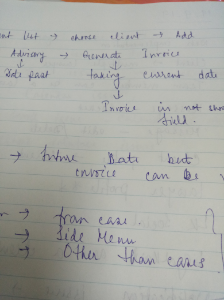 list → choose client → Add
Advisory → Generate Invoice
↓ ↓
Date past taking current date
↓
Invoice in not
field.
→ Future Date but
invoice can be
→ from case.
→ Side Menu
→ Other than cases